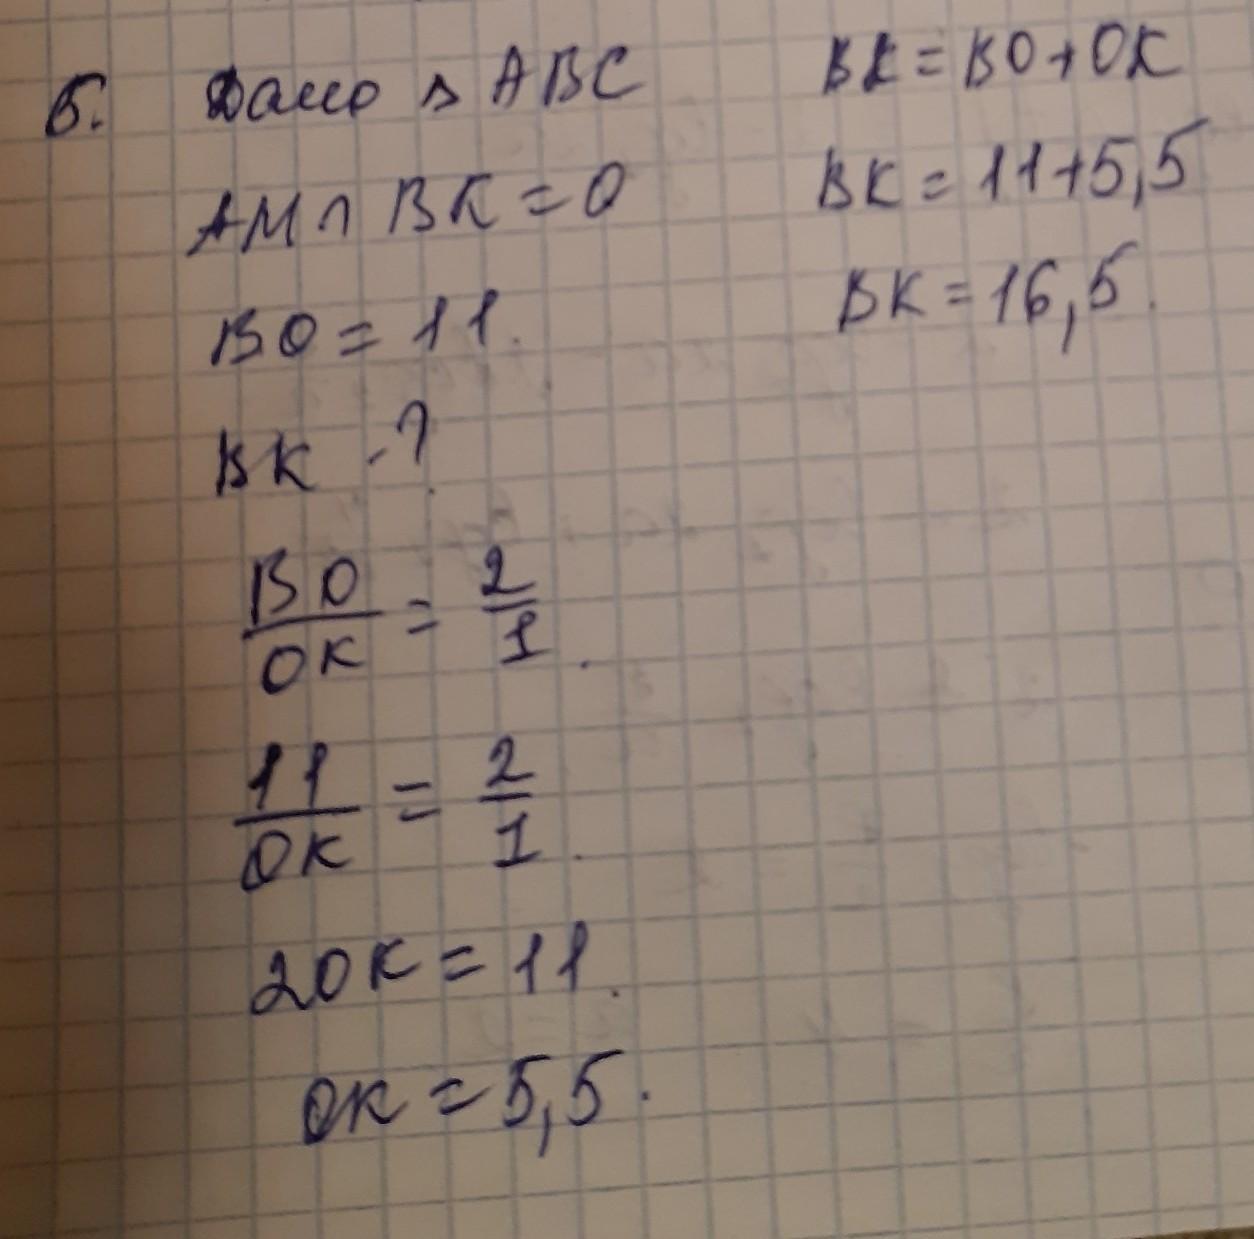 5. Дано ▵ ABC
AM ∩ BK = O
BO = 11.
BK - ?
BO/OK = 2/1.
11/OK = 2/1.
2OK = 11.
OK = 5,5.
BK = BO + OK
BK = 11 + 5,5
BK = 16,5.